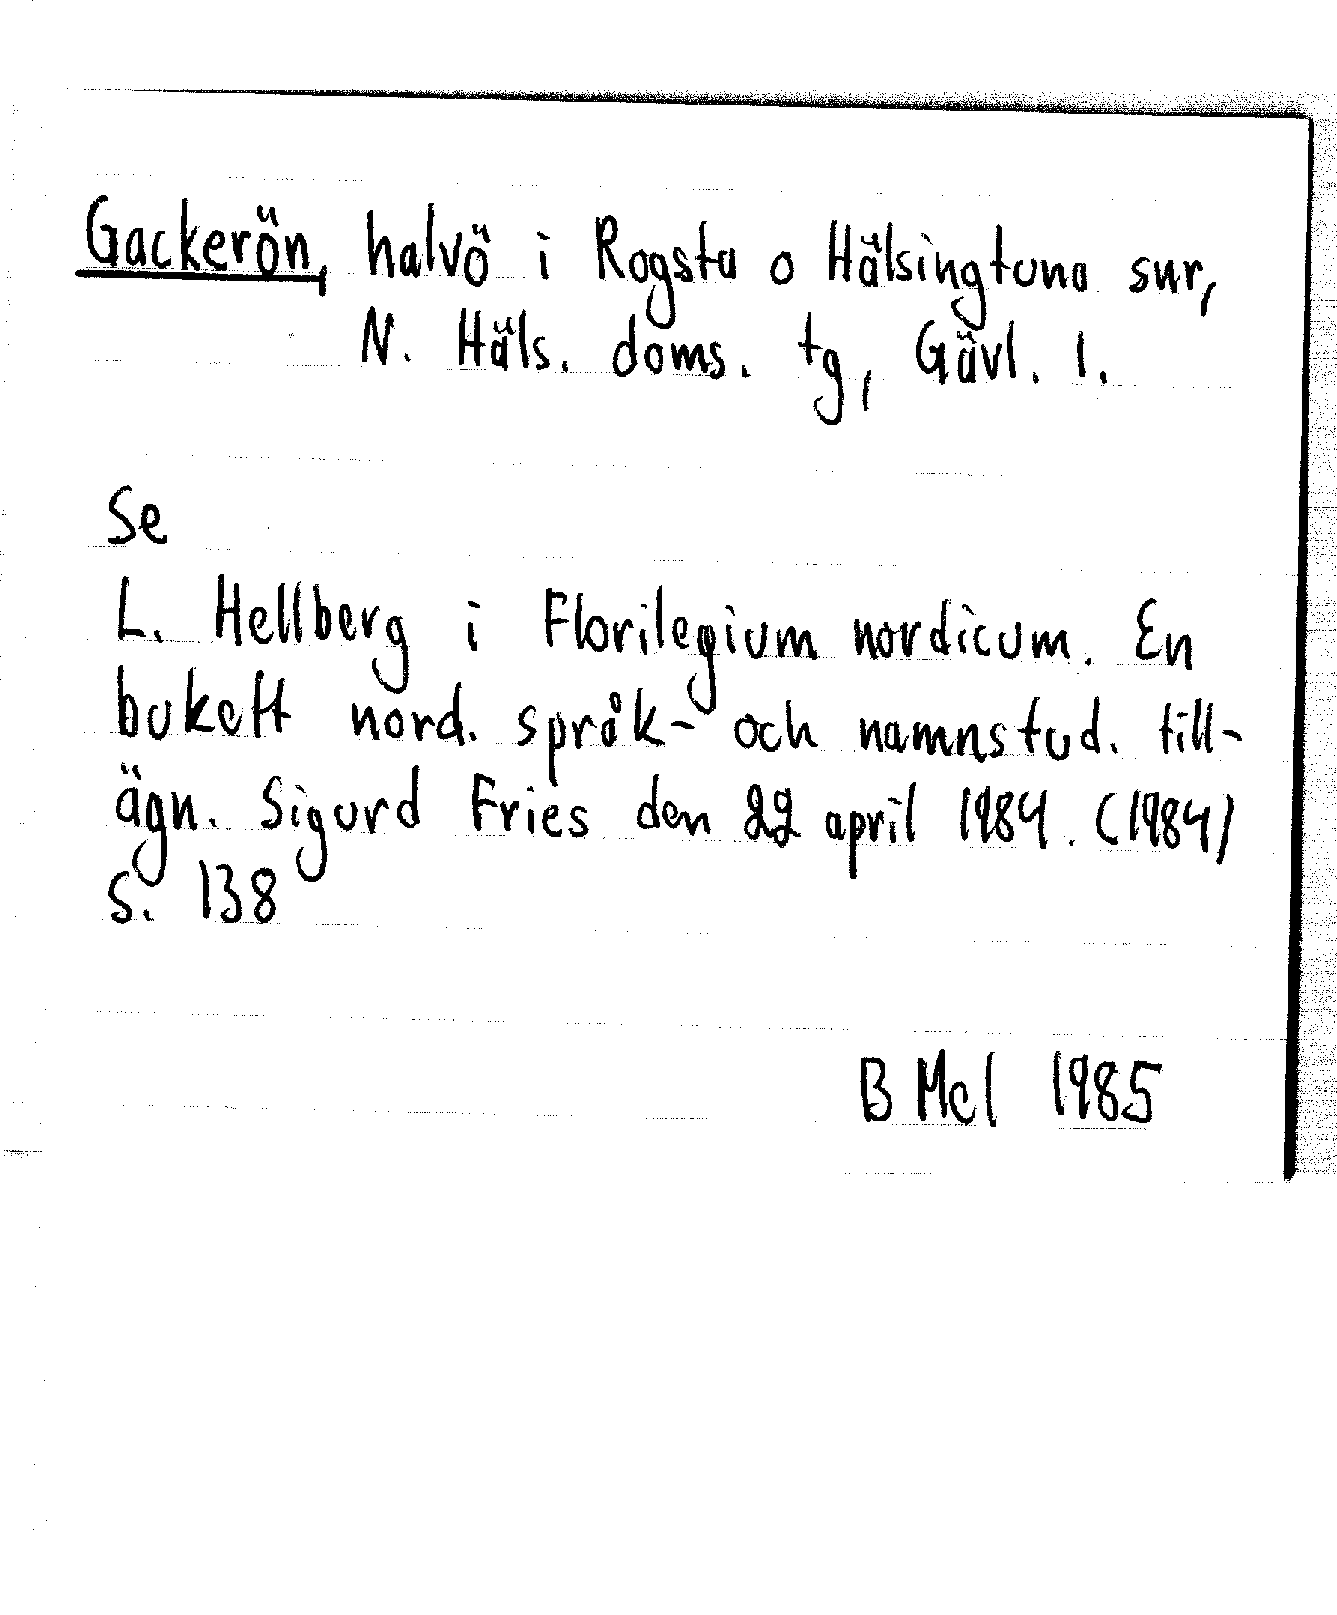 Gackerön, halvö i Rogsta o Hälsingtuna snr,
N. Häls. doms. tg, Gävl. l.
Se
L. Hellberg i Florilegium nordicum. En
bukett nord. språk- och namnstud. till-
ägn. Sigurd Fries den 22 april 1984. (1984)
S. 138
B Mel 1985